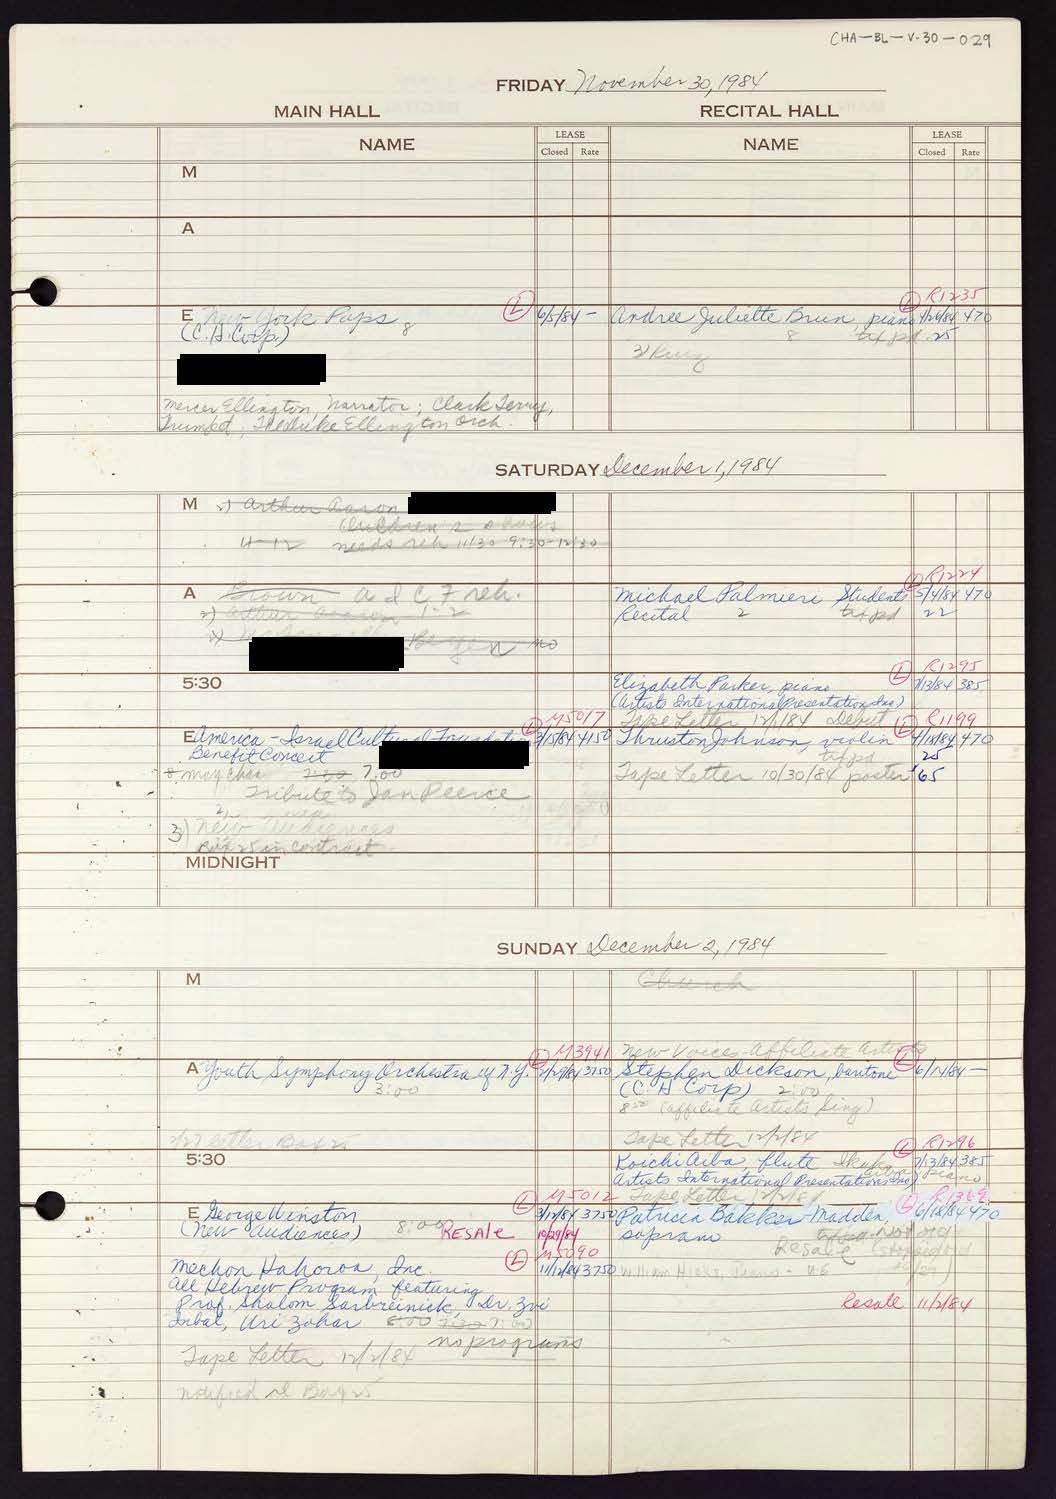 CHA-BL-V-30-029
FRIDAY November 30, 1984
MAIN HALL
RECITAL HALL
NAME
LEASE
Closed Rate
NAME
LEASE
Closed Rate
M
A
E New York Pops 8
(C.H. Corp)
L 6/5/84 -
Mercer Ellington, narrator; Clark Terry,
Trumpet; The Duke Ellington Orch.
R1235
Andree Juliette Brun, piano L 470
8 tax pd 25
SATURDAY December 1, 1984
M 2) Arthur Aaron
Children's shows
11-12 needs reh 11/30 9:30-12:30
A Brown A I C F reh.
2) Arthur Aaron 1-2
Bergen
R1224
Michael Palmieri Student L 5/4/84 470
Recital 2 tax pd 22
5:30
R1295
Elizabeth Parker, piano L 7/13/84 385
(Artists International Presentation Inc)
Tape Letter 12/1/84 Debut
M5017
E America-Israel Cultural Foundation L 3/15/84 4150
Benefit Concert
8 may chan 7:30 7:00
Tribute to Jan Peerce
3) New Audiences
Box 25 in contract
R1199
Thruston Johnson, violin L 4/18/84 470
tax pd 25
Tape Letter 10/30/84 poster 65
MIDNIGHT
SUNDAY December 2, 1984
M
Church
M3941
A Youth Symphony Orchestra of N.Y. L 3750
3:00
2/27 letter Box 25
New Voices-Affiliate Artists
Stephen Dickson, baritone L 6/14/84 -
(C.H. Corp) 2:00
(Affiliate Artists Sing)
Tape Letter 12/2/84
5:30
R1296
Koichi Aiba, flute L 7/13/84 385
piano
Artists International Presentations Inc)
Tape Letter 12/2/84
M5012
E George Winston L 3/12/84 3750
(New Audiences) 8:00 RESALE 10/29/84
M5090
Mechon Hahoroa, Inc. L 11/12/84 3750
All Hebrew Program featuring
Prof. Shalom Sarbreinick, Dr. Zvi
Inbal, Uri Zohar 8:00 7:30 7:00
no programs
Tape Letter 12/2/84
notified Box 25
R1369
Patricia Bakker-Madden, L 6/18/84 470
soprano
Resale
William Hicks, Piano - U.S
Resale 11/2/84